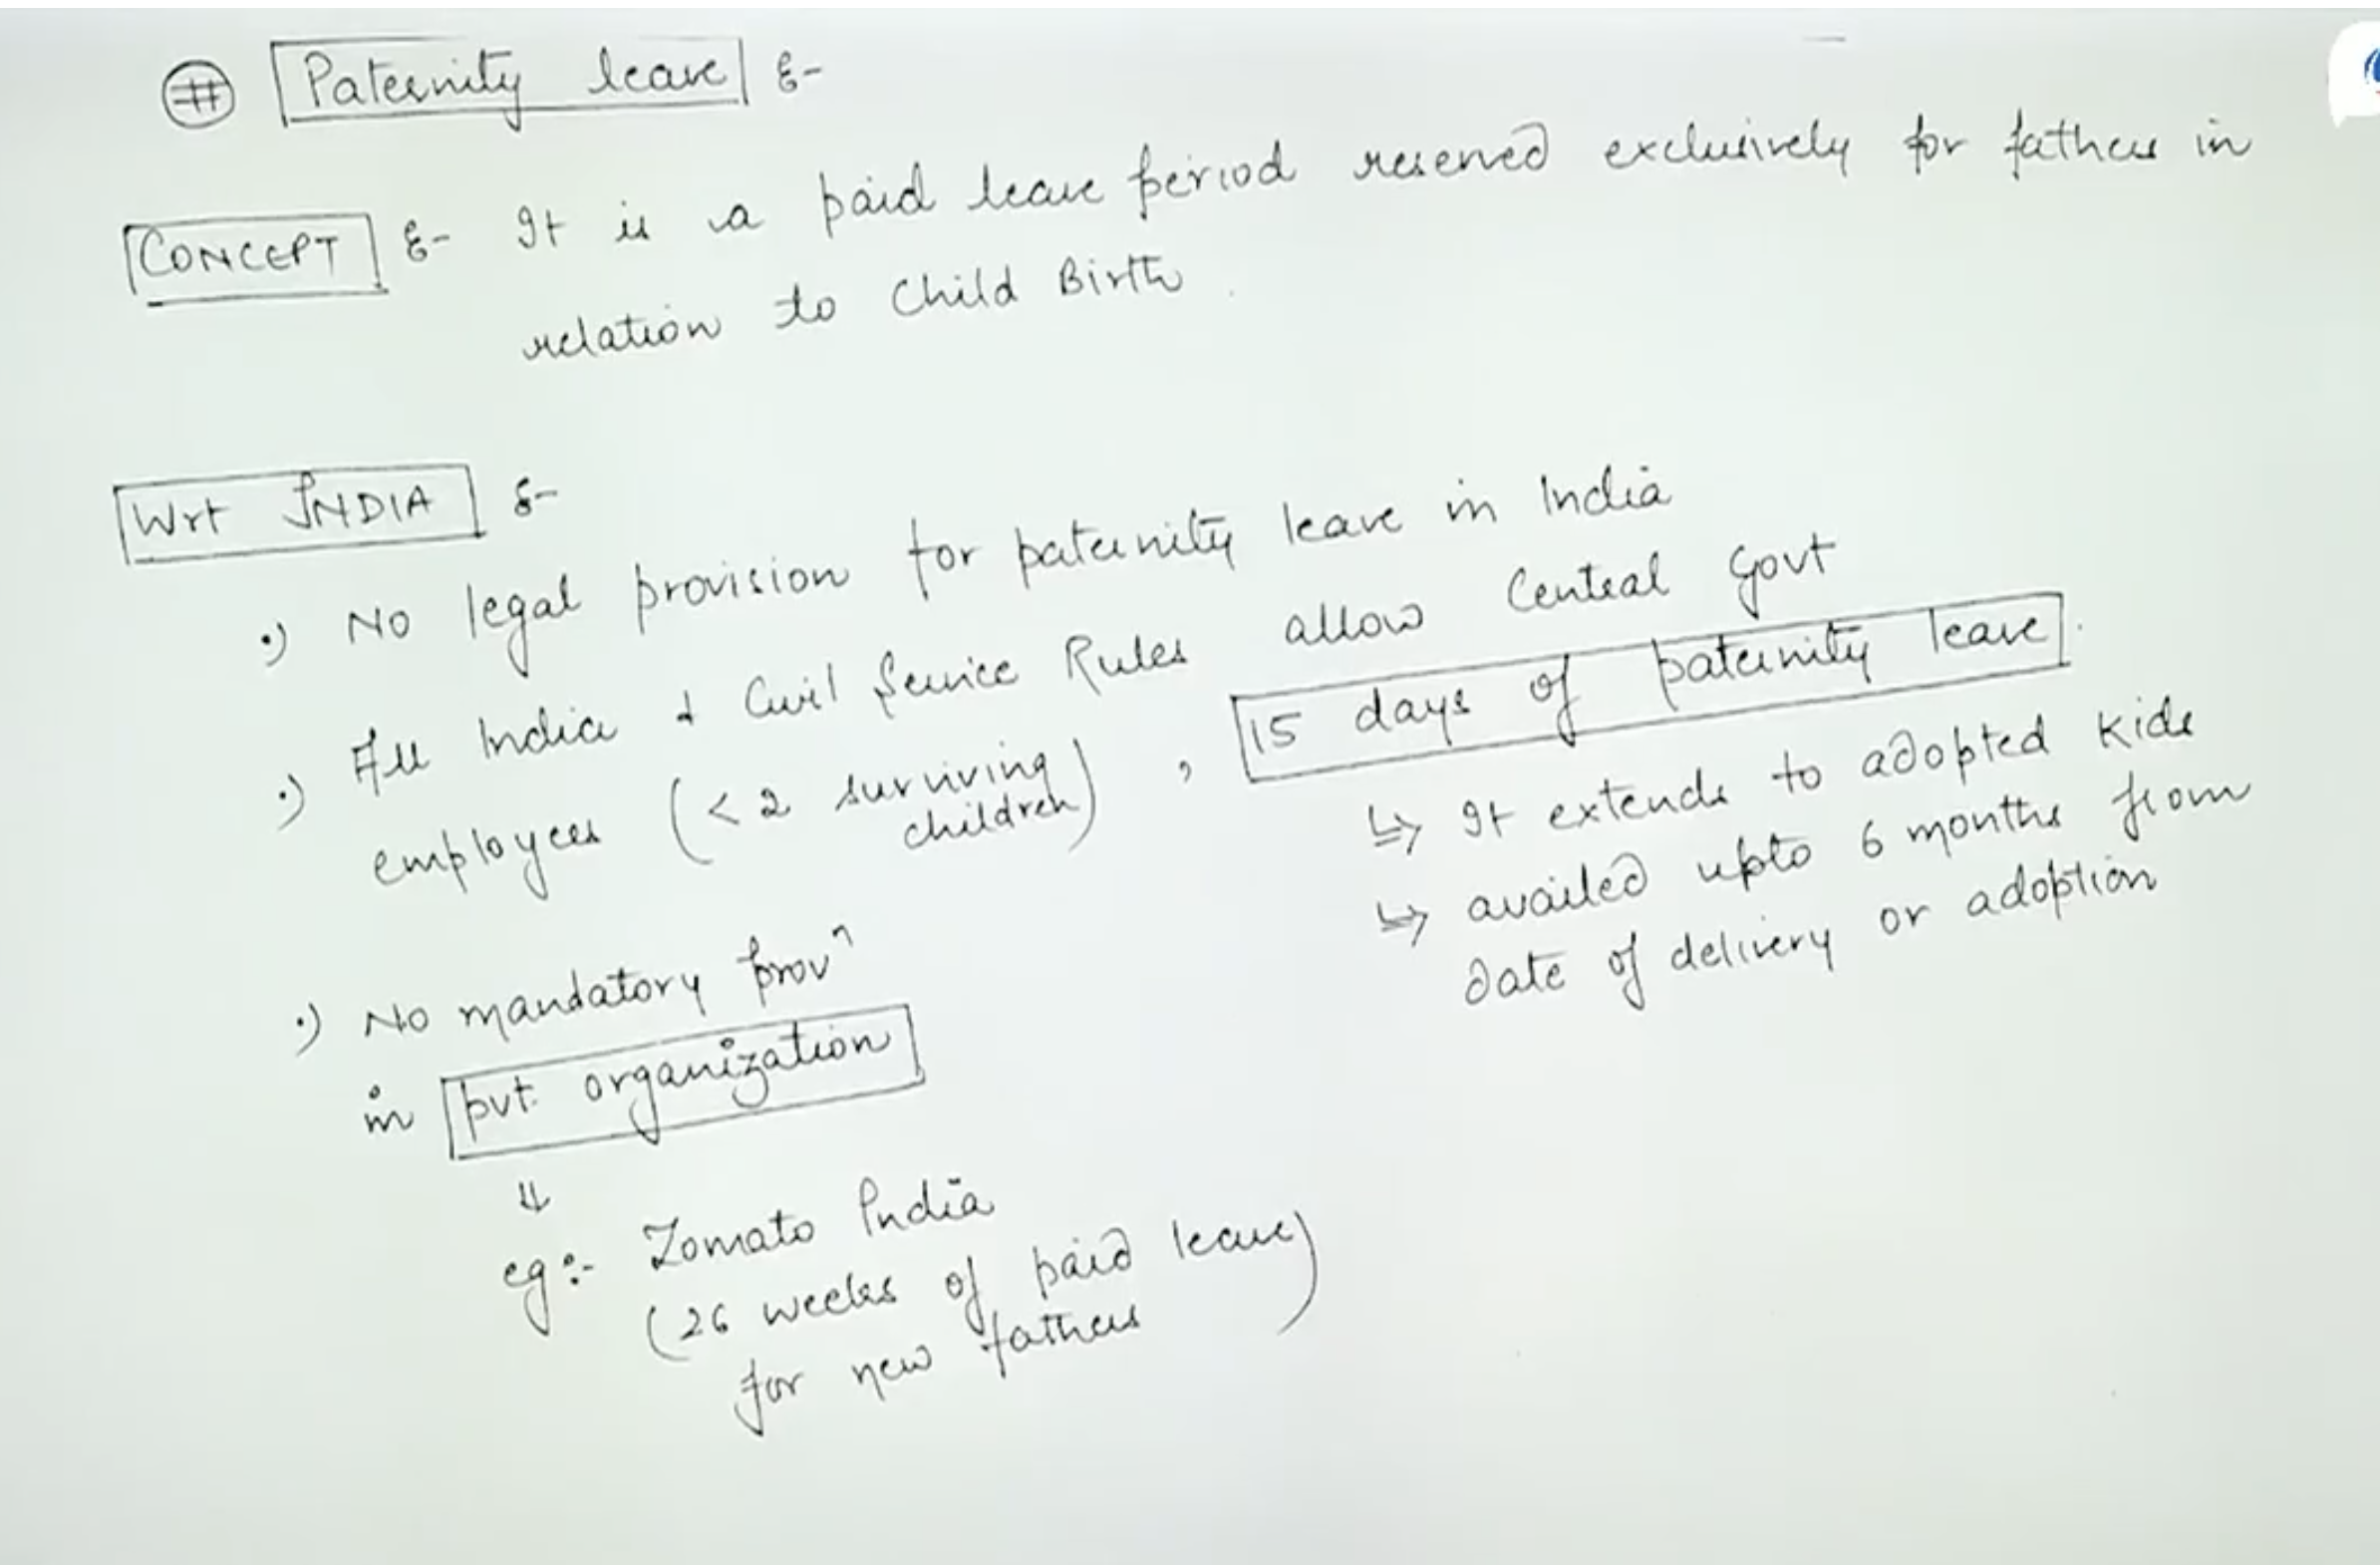 # Paternity leave :-
CONCEPT :- It is a paid leave period reserved exclusively for fathers in
relation to Child Birth.
Wrt INDIA :-
•) No legal provision for paternity leave in India
•) All India & Civil Service Rules allow Central Govt
employees (< 2 surviving children), 15 days of paternity leave.
↳ It extends to adopted kids
↳ availed upto 6 months from
date of delivery or adoption
•) No mandatory provⁿ
in pvt. organization
⇓
eg:- Zomato India
(26 weeks of paid leave)
for new fathers